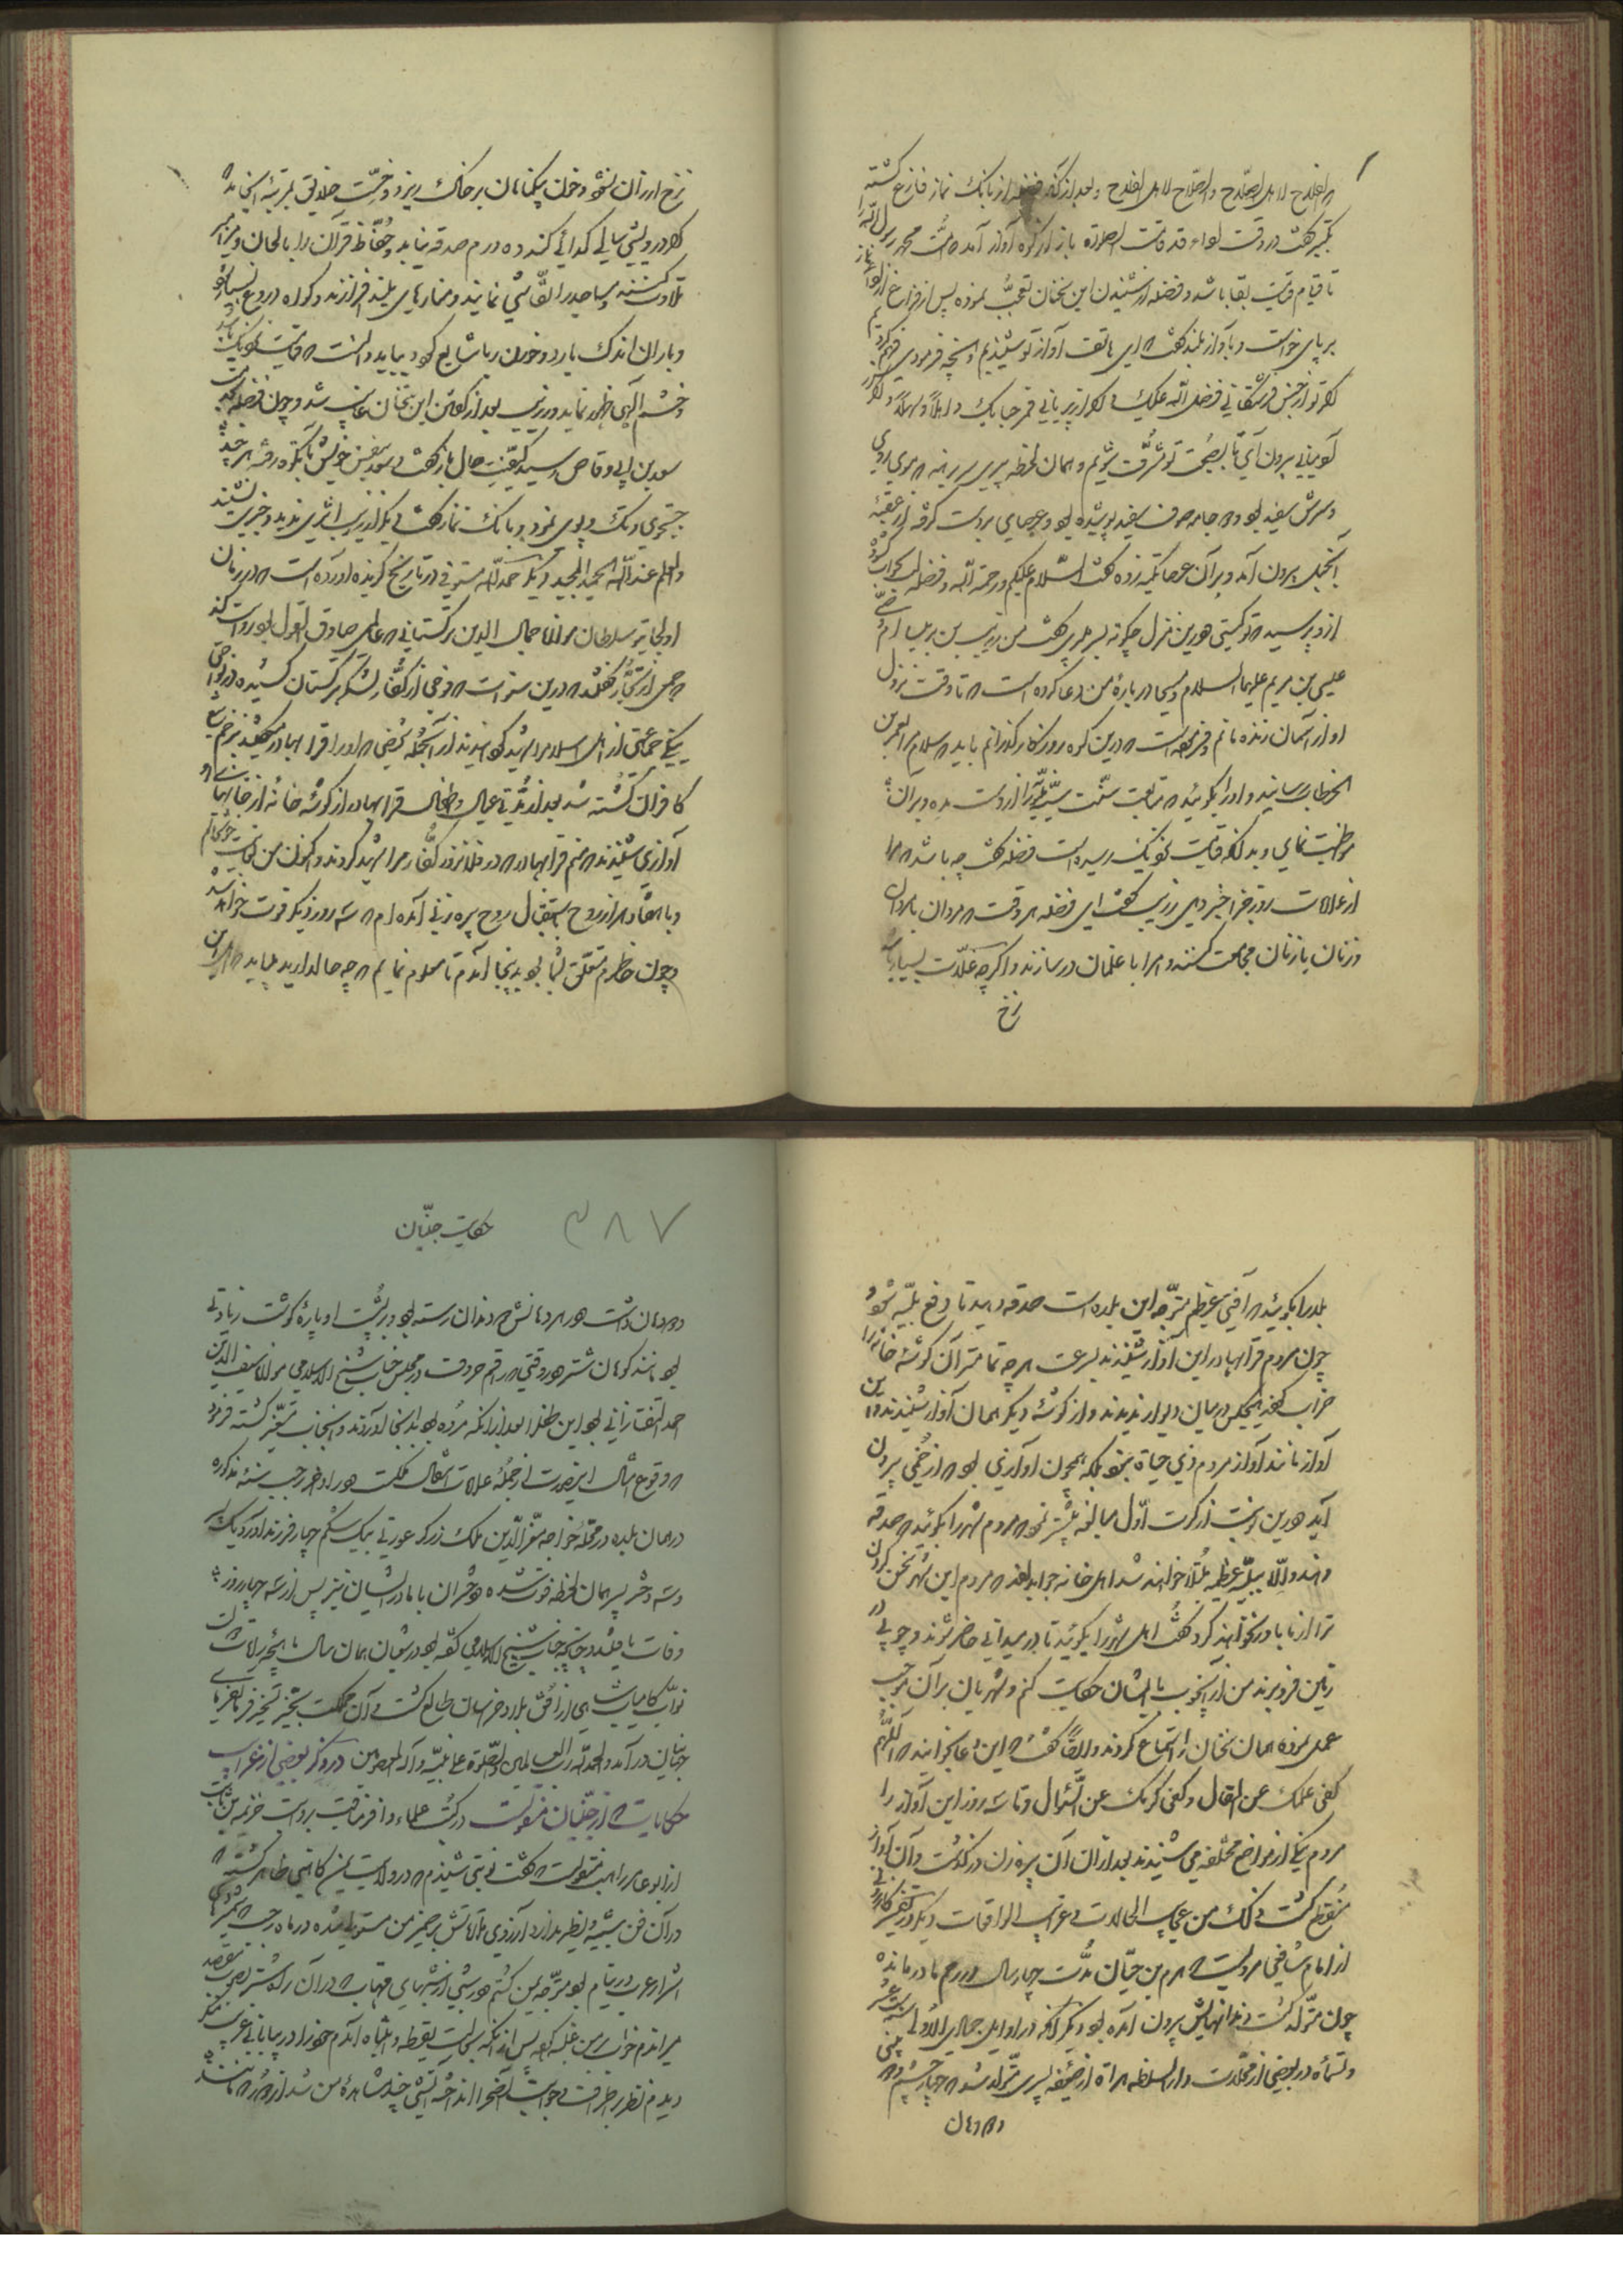 الفلاح لاهل الصلاح والصلاح لاهل الفلاح وبعد از آنکه فضله از بانک نماز فارغ کشته
تکبیر کفت در وقت اداء قد قامت الصلوة باز از کوه آواز آمد که امت محمد رسول الله را
تا قیام قیامت بقا باشد و فضله از شنیدن این سخنان تعجب نموده پس از فراغ از اداء نماز
بر پای خواست و بآواز بلند کفت که ای هاتف آواز تو شنیدیم و آنچه فرمودی فهم کردیم
اکر تو از جنس فرشتکانی فضل الله علیک و اکر از پریانی فمرحبا بک و اهلا و سهلا و اکر
آدمیانی بیرون آی تا بصحبت تو مشرف شویم و همان لحظه پیری سر برهنه که موی روی
و سرش سفید بود و جامه صوف سفید پوشیده بود و عصایی بدست کرفته از عقبه
آن جبل بیرون آمد و بر آن عصا تکیه زده کفت السلام علیکم ورحمة الله و فضله جواب کفته
از و پرسید که تو کیستی و درین منزل چکونه بسر میبری کفت من زریب بن برثملا ام وصی
عیسی بن مریم علیهما السلام و مسیحا در باره من دعا کرده است که تا وقت نزول
او از آسمان زنده مانم و فریضه است که درین کوه روزکار کذرانم باید که سلام من بعمر بن
الخطاب رسانید و او را بکوئید که متابعت سنت را از دست مده و بر آن
مواظبت نمای و بدانکه قیامت نزدیک رسیده است فضله کفت چه باشد که ما را
از علامات روز جزا خبر دهی زریب کفت ای فضله هر وقت که مردان با مردان
و زنان با زنان مجامعت کنند و امرا با غلمان در سازند و اکرچه غلات بسیار باشد
نرخ
نرخ ارزان نشود و خون بیکناهان بر خاک ریزد و خست خلایق بمرتبه انجامد
که اکر درویشی سالی کدائی کند ده درم صدقه نیابد و حفاظ قرآن را بالحان و مزامیر
تلاوت کنند و مساجد را نقاشی نمایند و منارهای بلند افرازند و کواه دروغ بسیار شود
و باران اندک بارد و خوردن ربا شایع شود بباید دانست که قیامت نزدیک باشد
و خشم الهی ظهور نماید و زریب بعد از کفتن این سخنان غایب شد و چون فضله بخدمت
سعد بن ابی وقاص رسید کیفیت حال باز کفت و سعد بنفس خویش تا بکوه رفته هر چند
جستجوی و تک و پوی نمود و بانک نماز کفت و از زریب اثری ندید و خبری نشنید
والعلم عند الله الحمید المجید دیکر حمد الله مستوفی در تاریخ کزیده آورده است که در زمان
اولجایتو سلطان مولانا جمال الدین ترکستانی که عالمی صادق القول بود روایت کند
که جمعی از تجار کفتند که درین سنوات که فوجی از کفار لشکر بترکستان کشیده در نواحی
ینکی جماعتی از اهل اسلام را شهید کردند از آنجمله شخصی که او را قرابهادر میکفتند بزخم تیر
کافران کشته شد بعد از مدتی عیال و اطفال قرابهادر از کوشه خانه از خانهای او
آوازی شنیدند که منم قرابهادر که در فلان روز کفار مرا شهید کردند و اکنون من حالم
و با هفتاد هزار روح باستقبال روح پیره زنی آمده ام که سه روز دیکر فوت خواهد شد
و چون خاطرم متعلق بشما بود بدینجا آمدم تا معلوم نمایم که چه حال دارید باید که اهل این
بلده را بکوئید که آفتی عظیم متوجه این بلده است صدقه دهید تا دفع بلیه شود
چون مردم قرابهادر این آواز شنیدند بسرعت هر چه تمامتر آن کوشه خانه را
خراب کردند هیچکس در میان دیوار ندیدند و از کوشه دیکر همان آواز شنیدند و این
آواز مانند آواز مردم ذی حیات نبود بلکه همچون آوازی بود که از خمی بیرون
آید و درین نوبت از کرت اول مبالغه بیشتر نمود که مردم شهر را بکوئید که صدقه
دهند و الا ببلیه عظیمه مبتلا خواهند شد اهل خانه جواب دادند که مردم این شهر سخن
ترا از ما باور نخواهند کرد کفت اهل شهر را بکوئید تا در میدانی حاضر شوند و چوبی در
زمین فرو برند من از آن چوب با ایشان حکایت کنم و شهریان بر آن موجب
عمل نموده همان سخنان را استماع کردند و ایضا کفت که این دعا بخوانید که اللهم
کفی علمک عن المقال و کفی کرمک عن السؤال و تا سه روز این آواز را
مردم ینکی از مواضع مختلفه می شنیدند بعد از آن آن پیره زن در کذشت و آن آواز
منقطع کشت و ذلک من عجایب الحالات و غرایب الواقعات دیکر در
از امام شافعی مرویست که هرم بن حیان مدت چهار سال در رحم مادر مانده
چون متولد کشت دندانهایش بیرون آمده بود دیکر آنکه در اوایل جمادی الاولی
و تسعمأه در بعضی از محلات دار السلطنه هراة از ضعیفه پسری متولد شد که چهار چشم
و دو دهان
۳۸۷
حکایت جنیان
و دو دهان داشت و در هر دهانش دو دندان رسته بود و بر پشت او پاره کوشت زیادتی
بود مانند کوهان شتر و در وقتی که راقم حروف در مجلس جناب شیخ الاسلامی مولانا سیف الدین
احمد التفتازانی بود این طفل را بعد از آنکه مرده بود بدانجا آوردند و آنجناب متغیر کشته فرمود
که وقوع امثال این صورت از جمله علامات انتقال مملکت است و در اواخر رجب سنه مذکوره
در همان بلده در محله خواجه معز الدین ملک زرکر عورتی بیک شکم چهار فرزند آورد یک پسر
و سه دختر پسر همان لحظه فوت شده دختران با مادر ایشان نیز پس از سه چهار روز
وفات یافتند و چنانچه جناب شیخ الاسلامی کفته بود در شعبان همان سال ماهچه رایات
نواب کامیاب شاهی از افق بلاد خراسان طالع کشت و آن مملکت بحیز تسخیر فرمانفرمای
جهان در آمد والحمد لله رب العالمین والصلوة علی نبیه وآله المعصومین در ذکر بعضی از غرایب
حکایات که از جنیان منقولست در کتب علماء وافر مناقب بروایت خزیمه بن ثابت
از ابو عامر راهب منقولست که کفت نوبتی شنیدم که در ولایت یمن کاهنی ظاهر کشته که
در آن فن شبیه و نظیر ندارد آرزوی ملاقاتش بر ضمیر من مستولی شده در ماه رجب که
اشرار عرب در نیام بود متوجه یمن کشتم و در شبی از شبهای مهتاب که در آن راه شتر بصوب مقصد
میراندم خواب بر من غلبه کرد پس از آنکه بحالت یقظه و انتباه آمدم خود را در بیابانی غریب
دیدم نظر بر اطراف و جوانب آن صحرا انداخته آتشی چند مشاهده من شد از دور که مانند